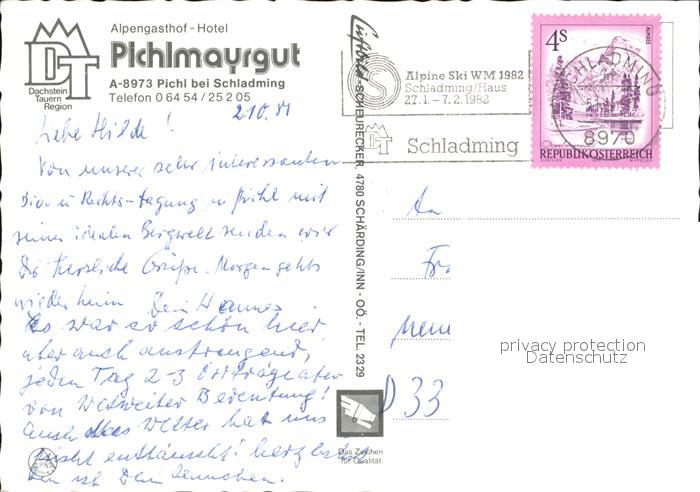 Alpengasthof - Hotel
Pichlmayrgut
A-8973 Pichl bei Schladming
Telefon 0 64 54 / 25 2 05
DT
Dachstein
Tauern
Region
2.10.81
Liebe Hilde!
Von unserer sehr interessanten
Tagung in Pichl mit
seiner idealen Bergwelt senden wir
Dir herzliche Grüße. Morgen gehts
wieder heim Dein Hannes
Es war so schön hier
aber auch anstrengend,
jeden Tag 2-3 Vorträge aber
von weltweiter Bedeutung!
Auch das Wetter hat uns
nicht enttäuscht! herzlichst
bin ich Dein
Luftbild-SCHEURECKER, 4780 SCHÄRDING/INN - OÖ. - TEL. 23 29
Das Zeichen
für Qualität
Alpine Ski WM 1982
Schladming/Haus
27.1. - 7.2.1982
Schladming
4S
ALMSEE
SCHLADMING
8970
REPUBLIK ÖSTERREICH
An
Fr
D 33
privacy protection
Datenschutz